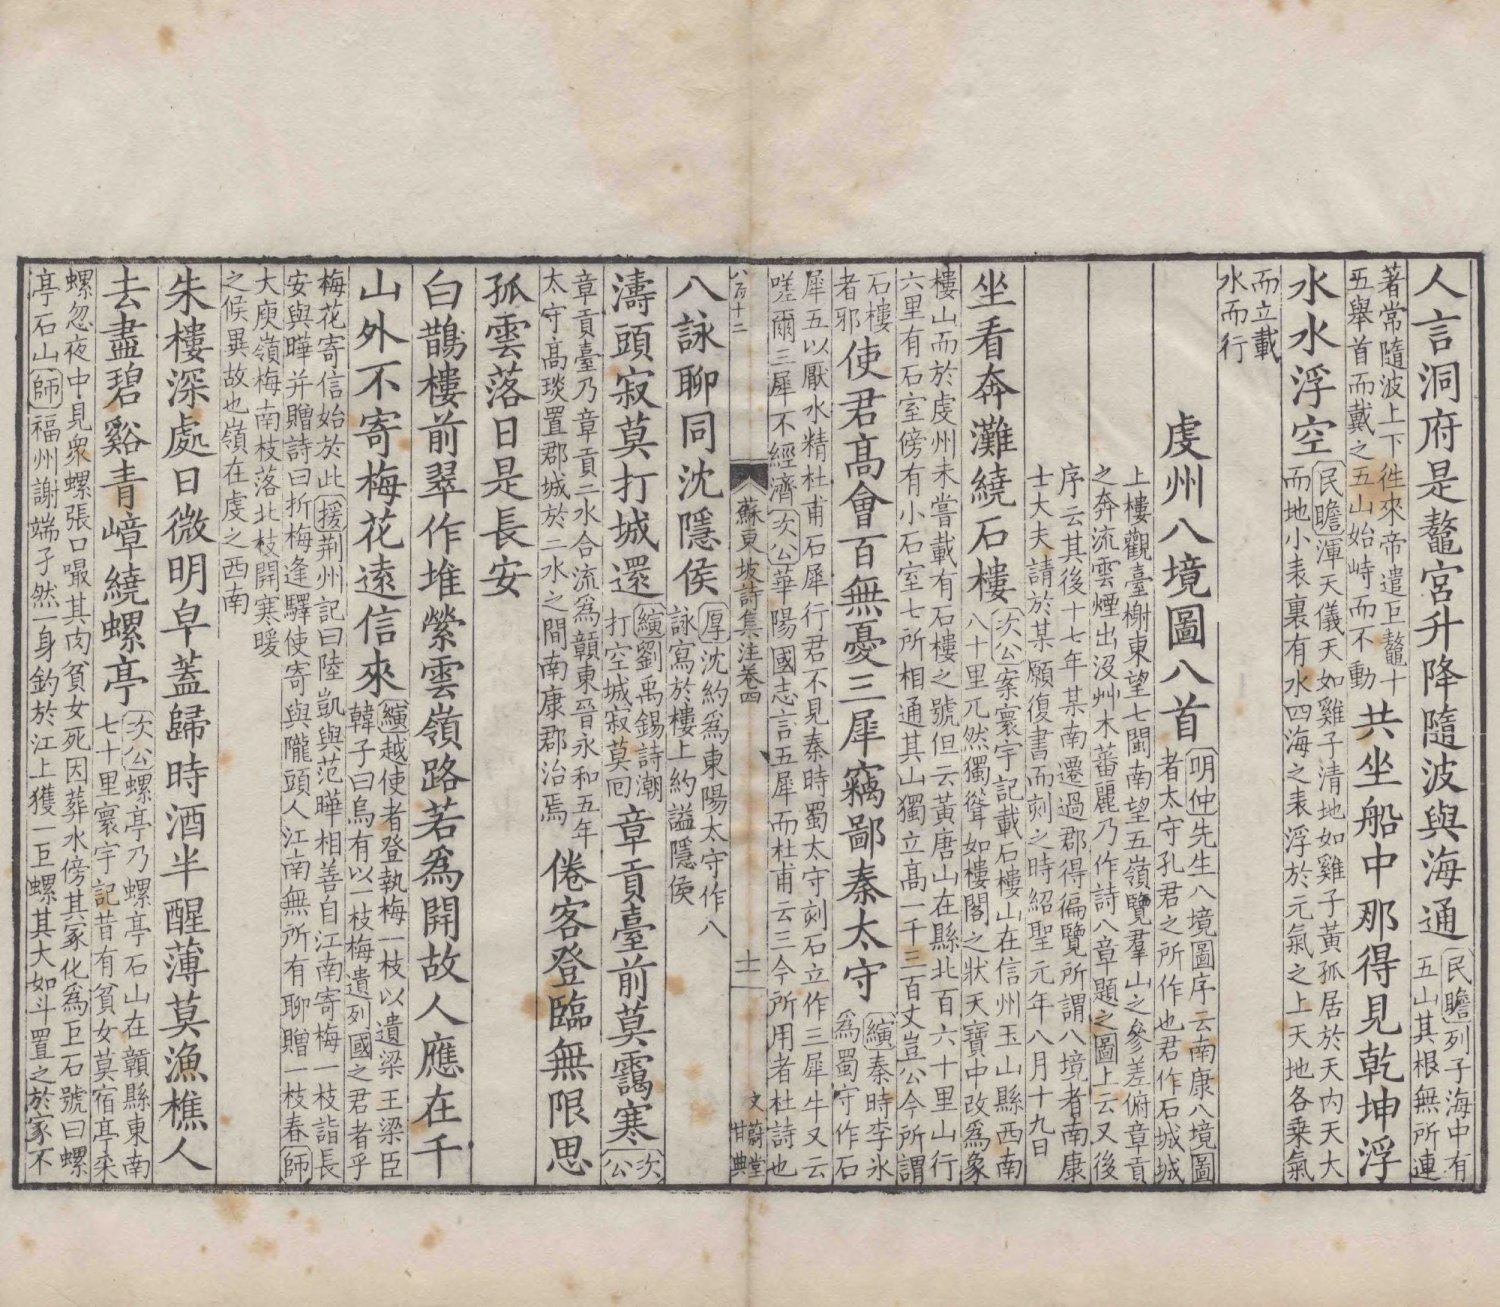 人言洞府是鼇宮升降隨波與海通民瞻列子海中有五山其根無所連
著常隨波上下徃來帝遣巨鼇十五舉首而戴之五山始峙而不動共坐船中那得見乾坤浮
水水浮空民瞻渾天儀天如雞子清地如雞子黃孤居於天內天大而地小表裏有水四海之表浮於元氣之上天地各乗氣
而立載水而行
虔州八境圖八首明仲先生八境圖序云南康八境圖者太守孔君之所作也君作石城城
上樓觀臺榭東望七閩南望五嶺覽羣山之參差俯章貢之奔流雲煙出沒艸木蕃麗乃作詩八章題之圖上云又後
序云其後十七年某南遷過郡得徧覽所謂八境者南康士大夫請於某願復書而刻之時紹聖元年八月十九日
坐看奔灘繞石樓次公案寰宇記載石樓山在信州玉山縣西南八十里兀然獨聳如樓閣之狀天寶中改爲象
樓山而於虔州未嘗載有石樓之號但云黃唐山在縣北百六十里山行六里有石室傍有小石室七所相通其山獨立高一千三百丈豈公今所謂
石樓者邪使君髙會百無憂三犀竊鄙秦太守縯秦時李氷爲蜀守作石
犀五以厭水精杜甫石犀行君不見秦時蜀太守刻石立作三犀牛又云嗟爾三犀不經濟次公華陽國志言五犀而杜甫云三今所用者杜詩也
八百十二
蘇東坡詩集注卷四
十一
文蔚堂
甘典
八詠聊同沈隱侯厚沈約爲東陽太守作八詠寫於樓上約謚隱侯
濤頭寂莫打城還縯劉禹錫詩潮打空城寂莫回章貢臺前莫靄寒次公
章貢臺乃章貢二水合流爲贛東晉永和五年太守高琰置郡城於二水之間南康郡治焉倦客登臨無限思
孤雲落日是長安
白鵲樓前翠作堆縈雲嶺路若爲開故人應在千
山外不寄梅花遠信來縯越使者登執梅一枝以遺梁王梁臣韓子曰烏有以一枝梅遺列國之君者乎
梅花寄信始於此援荆州記曰陸凱與范曄相善自江南寄梅一枝詣長安與曄并贈詩曰折梅逢驛使寄與隴頭人江南無所有聊贈一枝春師
大庾嶺梅南枝落北枝開寒暖之候異故也嶺在虔之西南
朱樓深處日微明皁蓋歸時酒半醒薄莫漁樵人
去盡碧谿青嶂繞螺亭次公螺亭乃螺亭石山在贛縣東南七十里寰宇記昔有貧女莫宿亭采
螺忽夜中見衆螺張口嘬其肉貧女死因葬水傍其冢化爲巨石號曰螺亭石山師福州謝端孑然一身釣於江上獲一巨螺其大如斗置之於家不